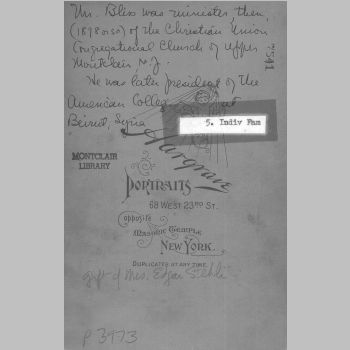 Mr. Bliss was minister, then,
(1898 or so) of the Christian Union
Congregational Church of Upper
Montclair N.J.
He was later president of the
American Colleg at
Beirut, Syria
7541
5. Indiv Fam
MONTCLAIR
LIBRARY
Hargrave
PORTRAITS
68 WEST 23RD ST.
OPPOSITE
MASONIC TEMPLE
NEW YORK.
DUPLICATES AT ANY TIME.
gift of Mrs. Edgar
P 3973